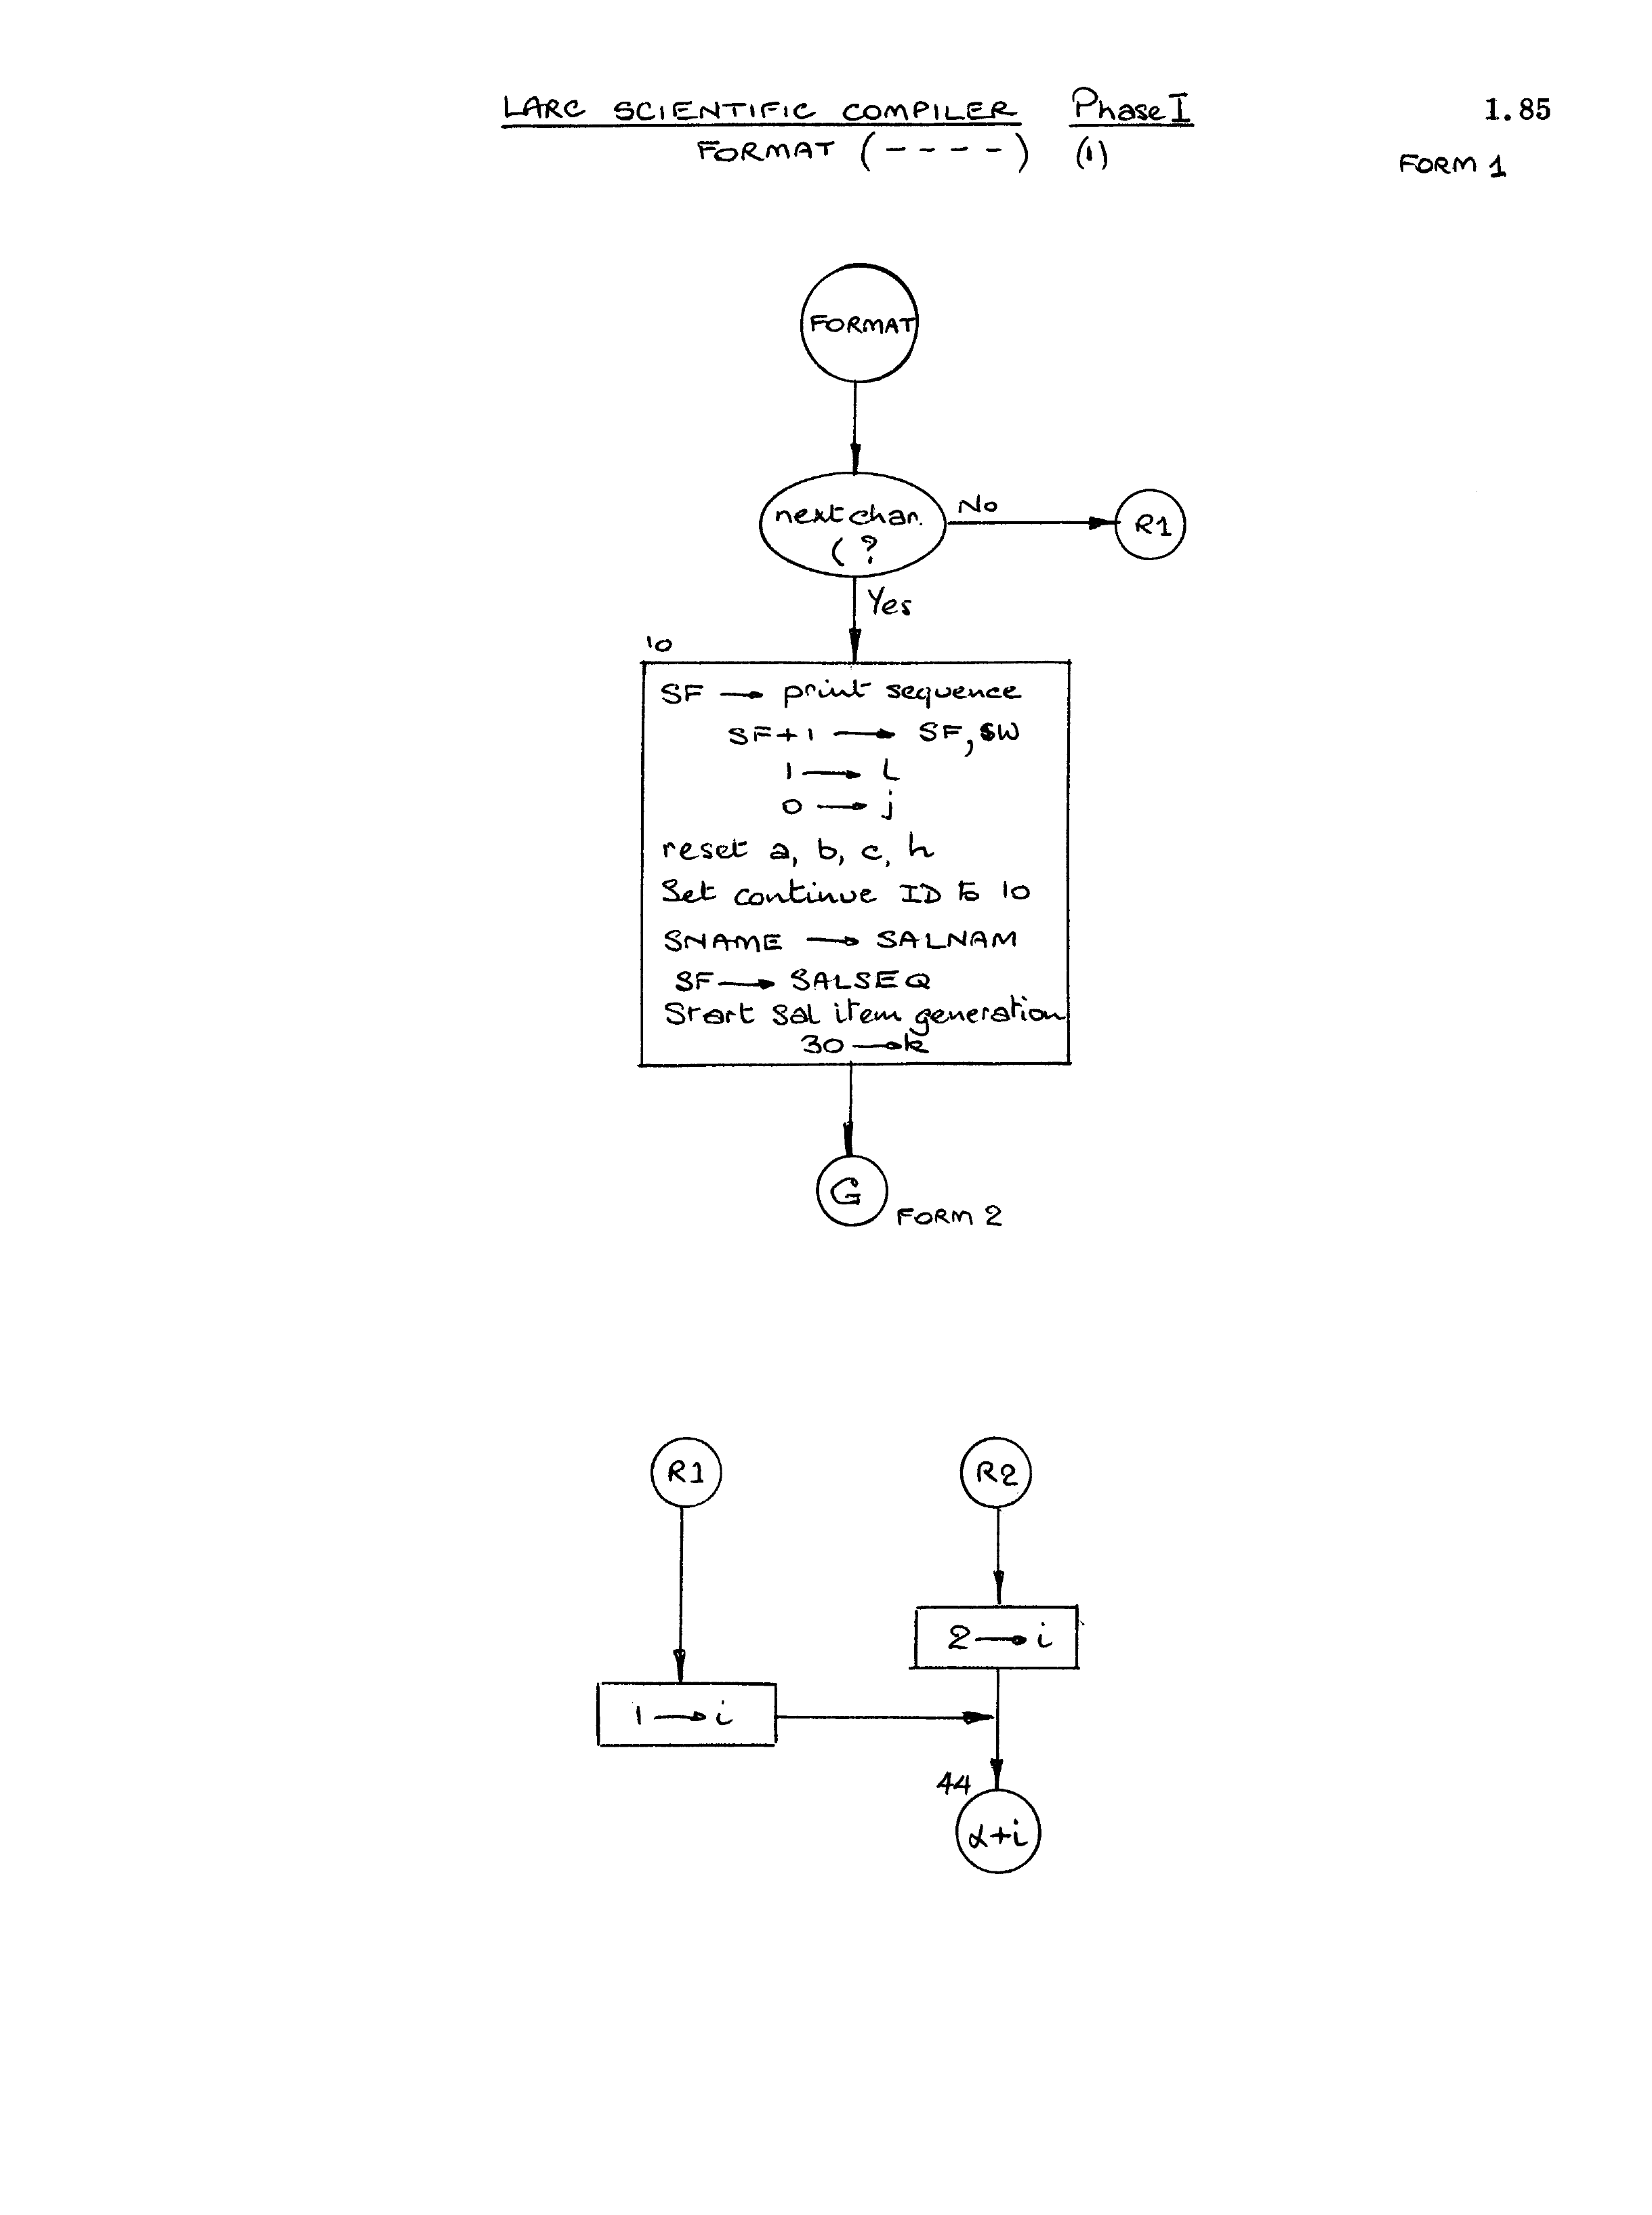 LARC SCIENTIFIC COMPILER Phase I 1.85
FORMAT (----) (1) FORM 1
FORMAT
next char.
( ?
No
R1
Yes
10
SF → print sequence
SF+1 → SF, SW
1 → L
0 → j
reset a, b, c, h
Set continue ID to 10
SNAME → SALNAM
SF → SALSEQ
Start Sal item generation
30 → k
G
FORM 2
R1 R2
2 → i
1 → i
44
α+i